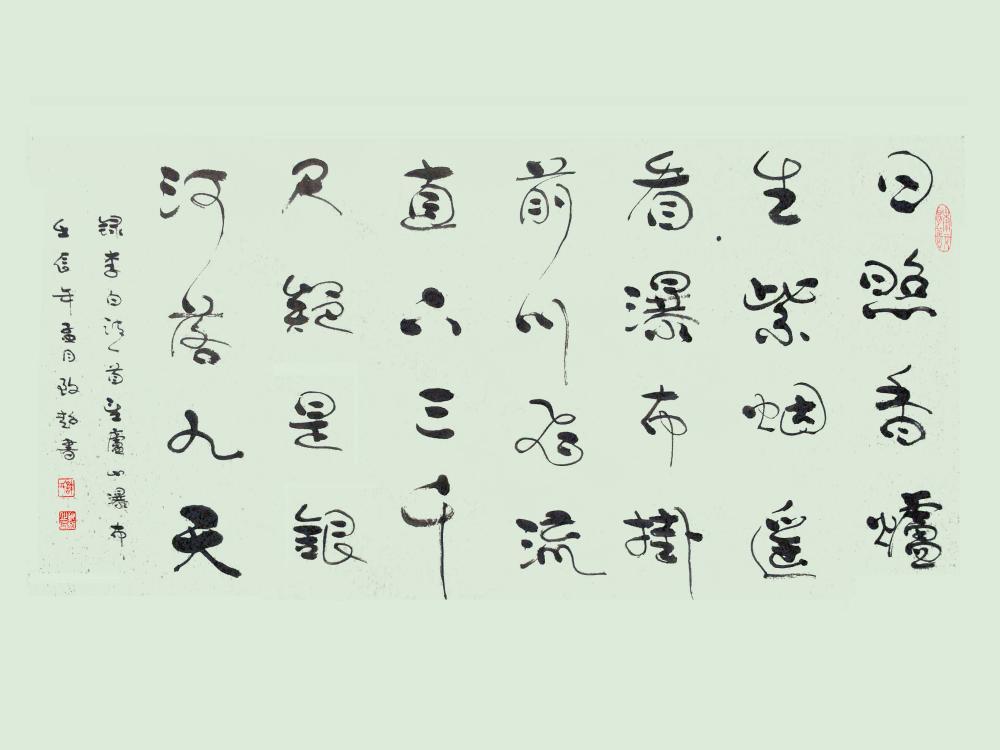 日照香爐
生紫烟遥
看瀑布掛
前川飛流
直下三千
尺疑是銀
河落九天
録李白詩一首望廬山瀑布
壬辰年孟月書